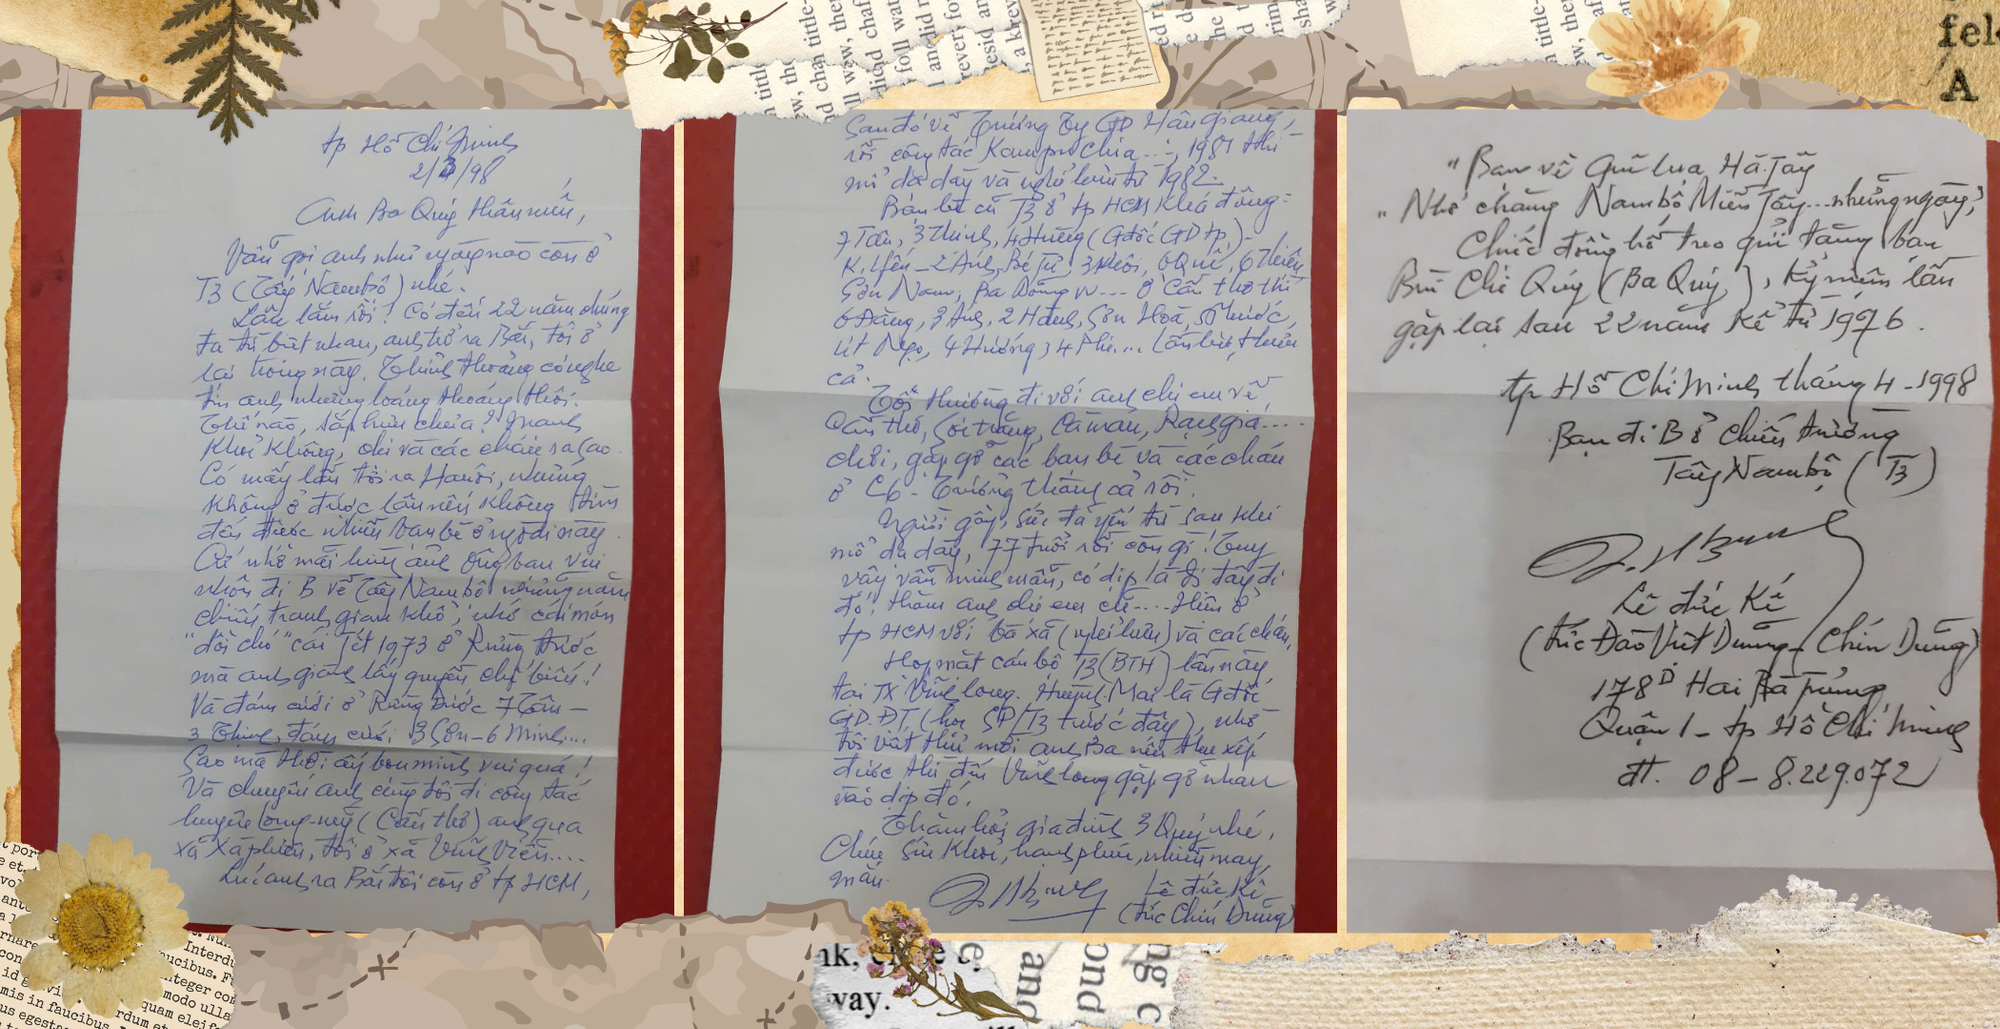 tp Hồ Chí Minh
2/3/98
Anh Ba Quý thân mến,
Vẫn gọi anh như ngày nào còn ở
T3 (Tây Nam bộ) nhé.
Lâu lắm rồi! Có đến 22 năm chúng
ta từ biệt nhau, anh trở ra Bắc, tôi ở
lại trong này. Thỉnh thoảng có nghe
tin anh nhưng loáng thoáng thôi.
Thế nào, sắp hưu chưa? Mạnh
khoẻ không, chị và các cháu ra sao.
Có mấy lần tôi ra Hanôi, nhưng
không ở được lâu nên không tìm
đến được nhiều bạn bè ở ngoài này.
Cứ nhớ mãi hình ảnh ông bạn vui
nhộn đi B về Tây Nam bộ những năm
chiến tranh gian khổ, nhớ cái món
"dồi chó" cái Tết 1973 ở Rừng Đước
mà anh giành lấy quyền chế biến!
Và đám cưới ở Rừng Đước 7 Tân -
3 Thinh, đám cưới 3 Sơn - 6 Minh...
Sao mà thời ấy bọn mình vui quá!
Và chuyến anh cùng tôi đi công tác
huyện Long-mỹ (Cần thơ) anh qua
xã Xà phiên, tôi ở xã Vĩnh Viễn....
Lúc anh ra Bắc tôi còn ở tp HCM,
Sau đó về Trường Ty GD Hậu Giang,
rồi công tác Kampuchia...., 1981 thì
mổ dạ dày và nghỉ hưu từ 1982.
Bạn bè cũ T3 ở tp HCM khá đông:
7 Tân, 3 Thinh, 4 Hường (Gđốc GD tp) -
K. Yến - 2 Anh, Bé Tư, 3 Khôi, 6 Quí, 6 Thiên,
Sơn Nam, Ba Đồng vv.... ở Cần thơ thì
6 Đăng, 3 Anh, 2 Hạnh, Sơn Hoà, 5 Phước,
út Ngọ, 4 Hường, 4 Phi.... Cần thơ, thiếu
cả.
Tôi thường đi với anh chị em về
Cần thơ, Sóc trăng, Cà mau, Rạch giá.....
chơi, gặp gỡ các bạn bè và các cháu
ở C6 - Trưởng thành cả rồi.
Người gầy, sức đã yếu từ sau khi
mổ dạ dày, 77 tuổi rồi còn gì! Tuy
vậy vẫn minh mẫn, có dịp là đi đây đi
đó, thăm anh chị em cũ.... Hiện ở
tp HCM với bà xã (mới hưu) và các cháu,
Họp mặt cán bộ T3 (BTH) lần này
tại TX Vĩnh long. Huỳnh Mai là Gđốc
GD.ĐT (học SP/T3 trước đây), nhờ
tôi viết thư mời anh Ba nếu thu xếp
được thì đến Vĩnh long gặp gỡ nhau
vào dịp đó.
Thăm hỏi gia đình 3 Quý nhé.
Chúc sức khoẻ, hạnh phúc, nhiều may
mắn.
Lê đức Kế
(tức Chín Dũng)
"Bạn về Quê lụa, Hà Tây
"Nhớ chăng Nam bộ Miền Tây... những ngày,
Chiếc đồng hồ treo gửi tặng bạn
Bùi Chí Quý (Ba Quý), kỷ niệm lần
gặp lại sau 22 năm kể từ 1976.
tp Hồ Chí Minh tháng 4 - 1998
Bạn đi B ở chiến trường
Tây Nam bộ (T3)
Lê đức Kế
(tức Đào Việt Dũng - Chín Dũng)
178D Hai Bà Trưng
Quận 1 - tp Hồ Chí Minh
đt. 08 - 8.229.072